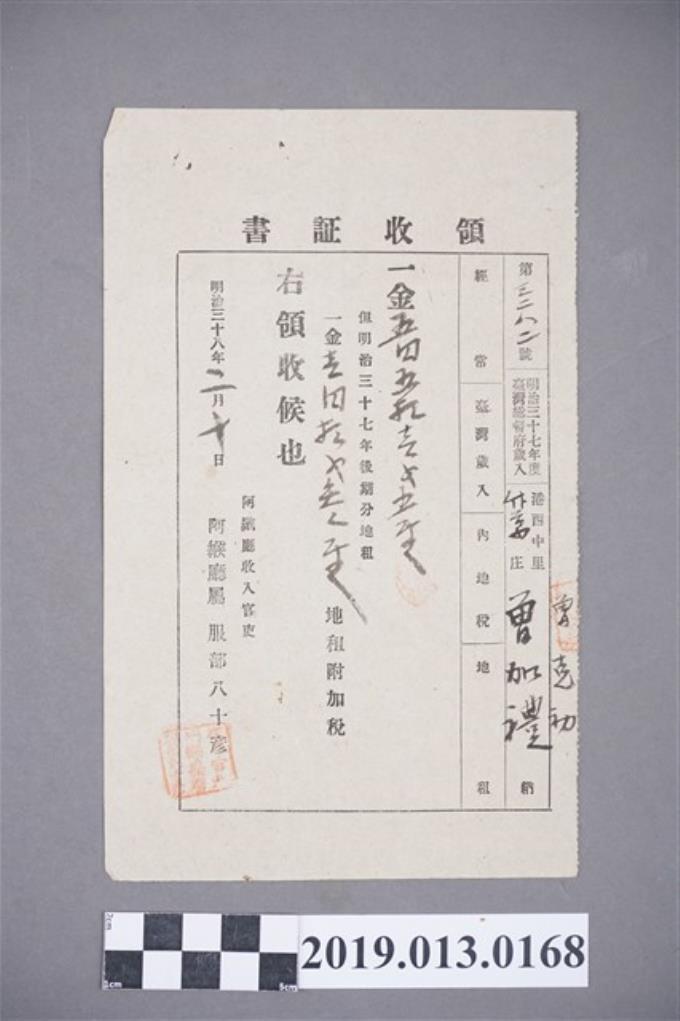 領收証書
第三二八二號
明治三十七年度
臺灣總督府歲入
港西中里
庄
曾克初
曾加禮
納
經常
臺灣歲入
內地稅
地租
一金五円五拾壱戋五厘
但明治三十七年後期分地租
一金壱円拾戋 厘 地租附加稅
右領收候也
明治三十八年二月十日
阿緱廳收入官吏
阿緱廳屬 服部八十彥
2cm
1cm
5cm
2019.013.0168